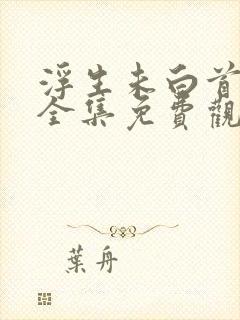 浮生未白首
全集免費觀
葉舟